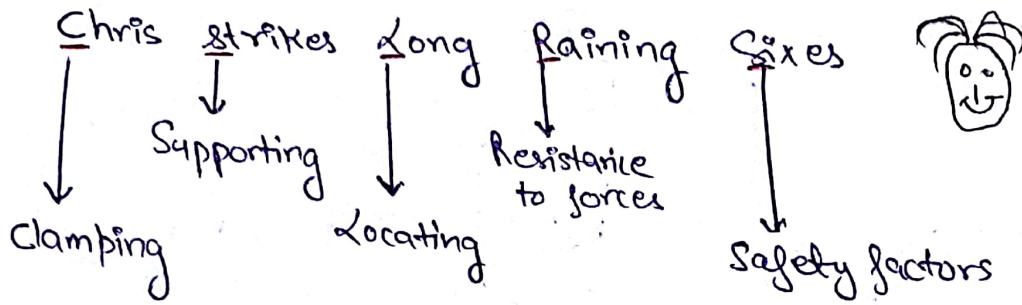 Chris Strikes Long Raining Sixes
Supporting
Resistance
to forces
Clamping
Locating
Safety factors